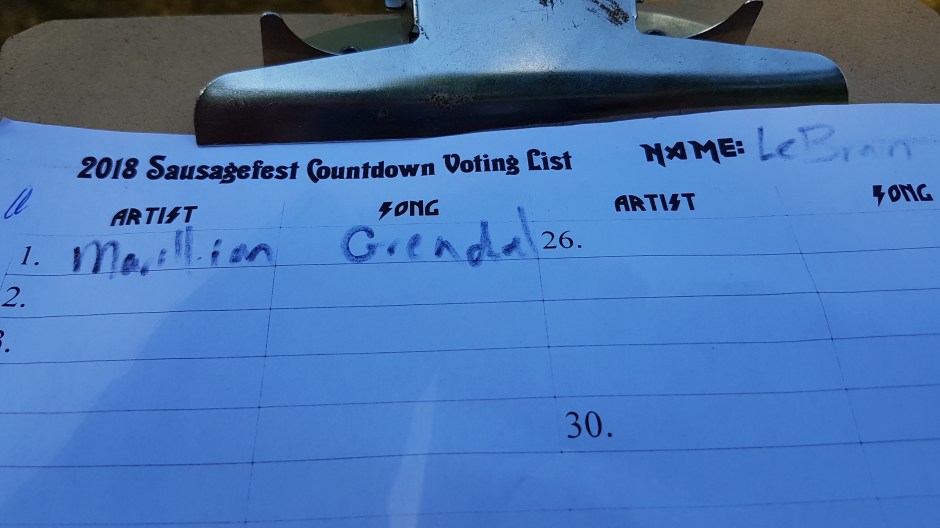 2018 Sausagefest Countdown Voting List NAME: LeBrain
ARTIST SONG ARTIST SONG
1. Marillion Grendel 26.
2.
30.